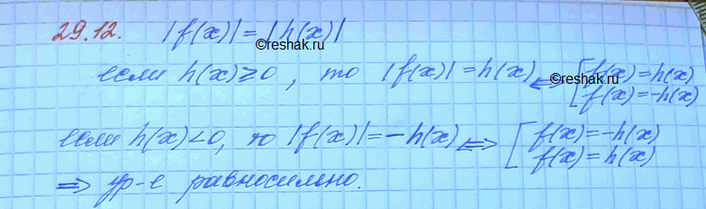 29.12. |f(x)| = |h(x)|
©reshak.ru
если h(x)≥0, то |f(x)| = h(x) ⟺ [ f(x) = h(x)
f(x) = -h(x)
©reshak.ru
если h(x)<0, то |f(x)| = -h(x) ⟺ [ f(x) = -h(x)
f(x) = h(x)
⟹ ур-е равносильно.